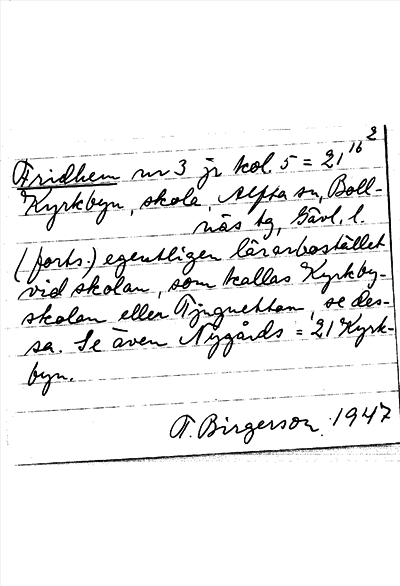 Fridhem nr 3 jr kol. 5 = 21 16 2
Kyrkbyn, skola, Alfta sn, Boll-
näs tg, Gävl. l.
(forts.) egentligen lärarbostället
vid skolan, som kallas Kyrkby-
skolan eller Tjuguettan, se des-
sa. Se även Nygårds = 21 Kyrk-
byn.
T. Birgerson. 1947